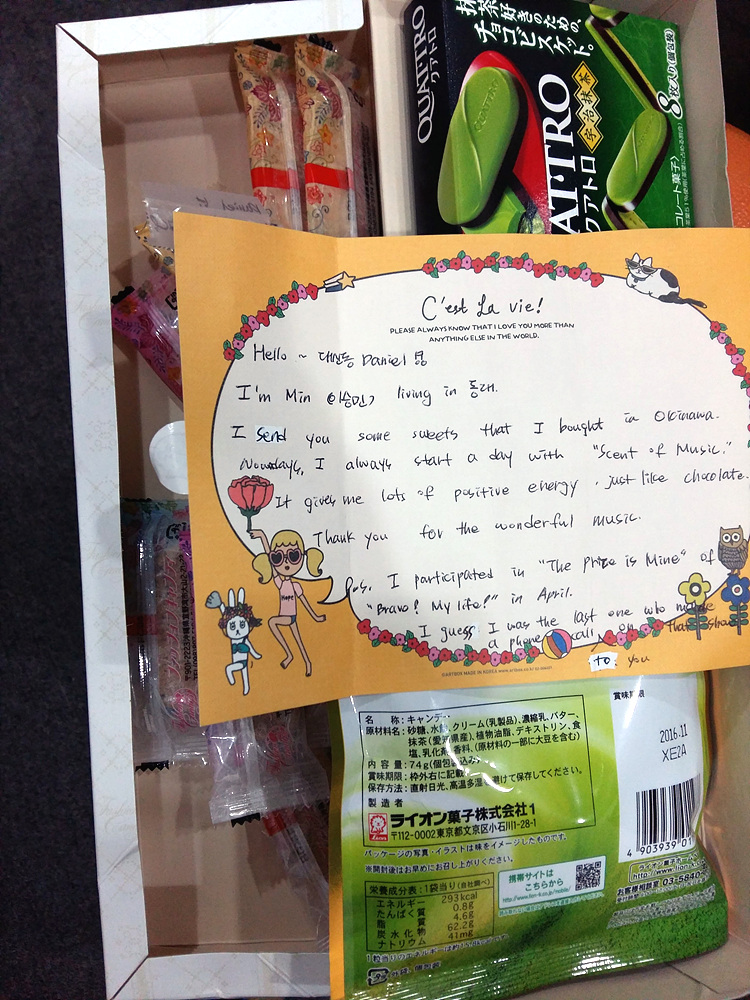 QUATTRO
クアトロ
抹茶好きのための、
チョコビスケット。
宇治抹茶
8枚入り(個包装)
C'est La vie!
PLEASE ALWAYS KNOW THAT I LOVE YOU MORE THAN
ANYTHING ELSE IN THE WORLD.
Hello ~ Daniel
I'm Min living in 동래.
I send you some sweets that I bought in Okinawa.
Nowadays, I always start a day with "Scent of Music."
It gives me lots of positive energy, just like chocolate.
Thank you for the wonderful music.
P.s. I participated in "The Prize is Mine" of
"Bravo! My life!" in April.
I guess I was the last one who made
a phone call on that show
to you
Hope
名 称:キャンデー
原材料名:砂糖、水飴、クリーム(乳製品)、濃縮乳、バター、
抹茶(愛知県産)、植物油脂、デキストリン、食
塩、乳化剤、香料、(原材料の一部に大豆を含む)
内 容 量:74g(個包装込み)
賞味期限:枠外右に記載
保存方法:直射日光、高温多湿を避けて保存してください。
製 造 者
ライオン菓子株式会社1
〒112-0002東京都文京区小石川1-28-1
パッケージの写真・イラストは味をイメージしたものです。
※開封後はお早めにお召し上がりください。
賞味期限
2016.11
XEZA
4 903939 01
栄養成分表:1袋当り(当社調べ)
エネルギー 293kcal
たんぱく質 0.8g
脂 質 4.6g
炭水化物 62.2g
ナトリウム 41mg
携帯サイトは
こちらから
お客様相談室 03-5840